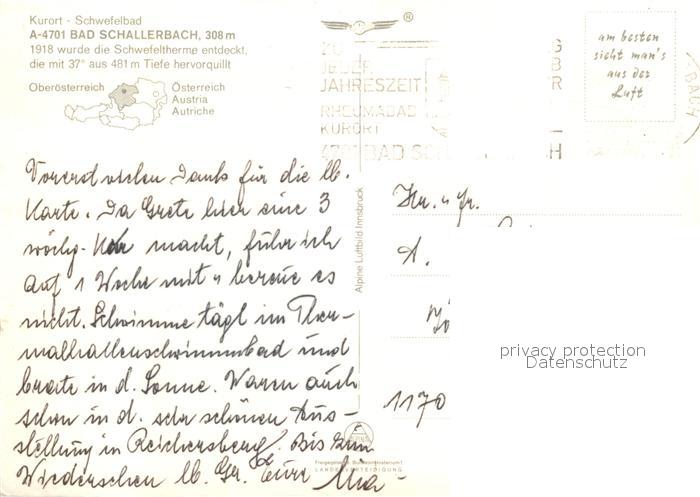 Kurort - Schwefelbad
A-4701 BAD SCHALLERBACH, 308 m
1918 wurde die Schwefeltherme entdeckt,
die mit 37° aus 481 m Tiefe hervorquillt
Oberösterreich
Österreich
Austria
Autriche
®
ZU
JEDER
JAHRESZEIT
RHEUMABAD
KURORT
4701 BAD SC H
BACH
am besten
sieht man's
aus der
Luft
Vorerst vielen Dank für die lb.
Karte. Da Grete hier eine 3
wöchg. Kur macht, fuhr ich
auf 1 Woche mit u bereue es
nicht. Schwimme tägl im Ther-
malhallenschwimmbad und
brate in d. Sonne. Waren auch
schon in d. sehr schönen Aus-
stellung in Reichersberg. Bis zum
Wiedersehen lb. Gr. Eure Mia-
Alpine Luftbild Innsbruck
Hr. u Fr.
A.
1170
privacy protection
Datenschutz
Freigegeben v. Bundesministerium f.
LANDESVERTEIDIGUNG